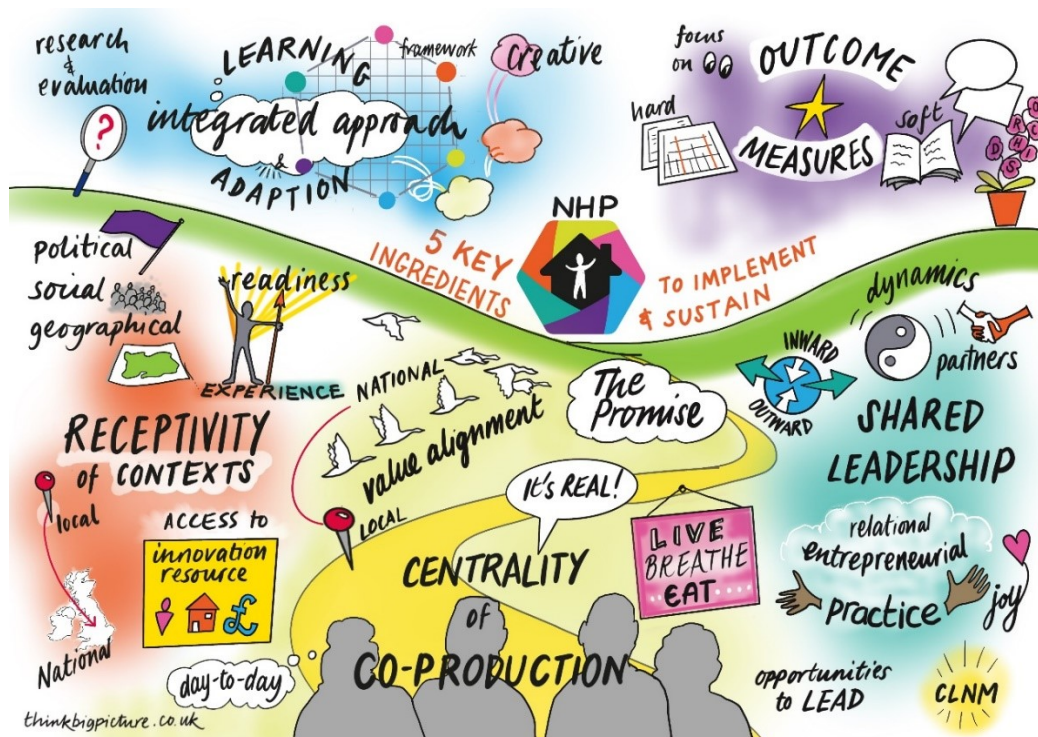 research
&
evaluation
?
LEARNING
framework
creative
integrated approach
&
ADAPTION
focus
on
OUTCOME
MEASURES
hard
soft
ORCHIDS
NHP
5 KEY
INGREDIENTS
TO IMPLEMENT
& SUSTAIN
political
social
geographical
readiness
EXPERIENCE
RECEPTIVITY
of CONTEXTS
local
National
ACCESS TO
innovation
resource
£
NATIONAL
value alignment
LOCAL
The
Promise
It's REAL!
CENTRALITY
OF
CO-PRODUCTION
day-to-day
LIVE
BREATHE
EAT
dynamics
partners
INWARD
OUTWARD
SHARED
LEADERSHIP
relational
entrepreneurial
practice
joy
opportunities
to LEAD
CLNM
thinkbigpicture.co.uk